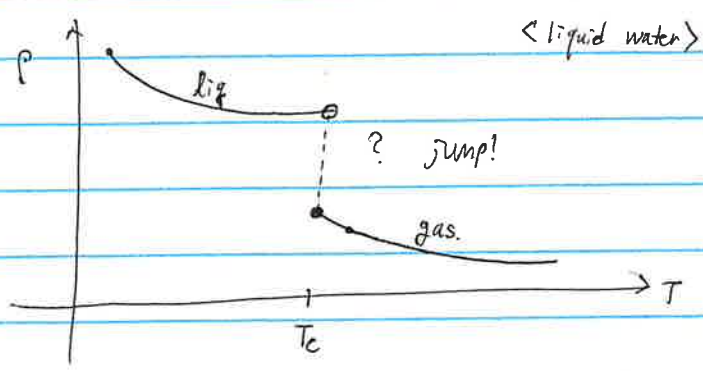 <liquid water>
ρ
liq
? jump!
gas.
T
Tc